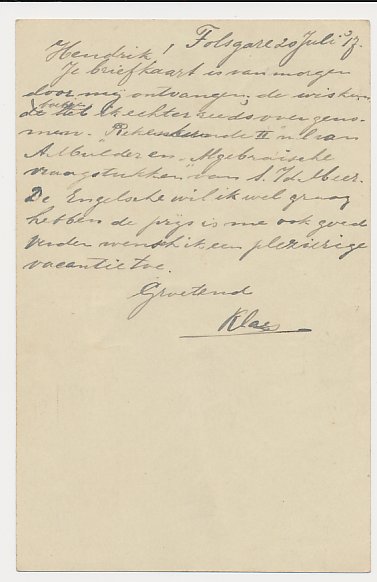 Folsgare 20 Juli '17.
Hendrik!
Je briefkaart is van morgen
door mij ontvangen, de wiskun.
boeken
de heb ik echter reeds overgeno-
men. "Rekenkunde II" n.l. van
A. Mulder en "Algebraïsche
vraagstukken" van S. v/d Meer.
De Engelsche wil ik wel graag
hebben de prijs is me ook goed
Verder wensch ik een plezierige
vacantie toe.
Groetend
Klaas